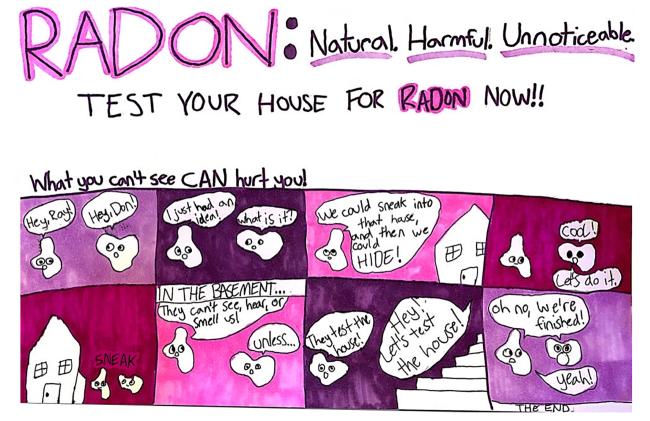 RADON: Natural. Harmful. Unnoticeable.
TEST YOUR HOUSE FOR RADON NOW!!
What you can't see CAN hurt you!
Hey, Ray!
Hey, Don!
I just had an
idea!
what is it!
We could sneak into
that house,
and then we
could
HIDE!
Cool!
Let's do it.
SNEAK
IN THE BASEMENT...
They can't see, hear, or
smell us!
unless...
They test the
house!
Hey!
Let's test
the house!
oh no, we're
finished!
yeah!
THE END.